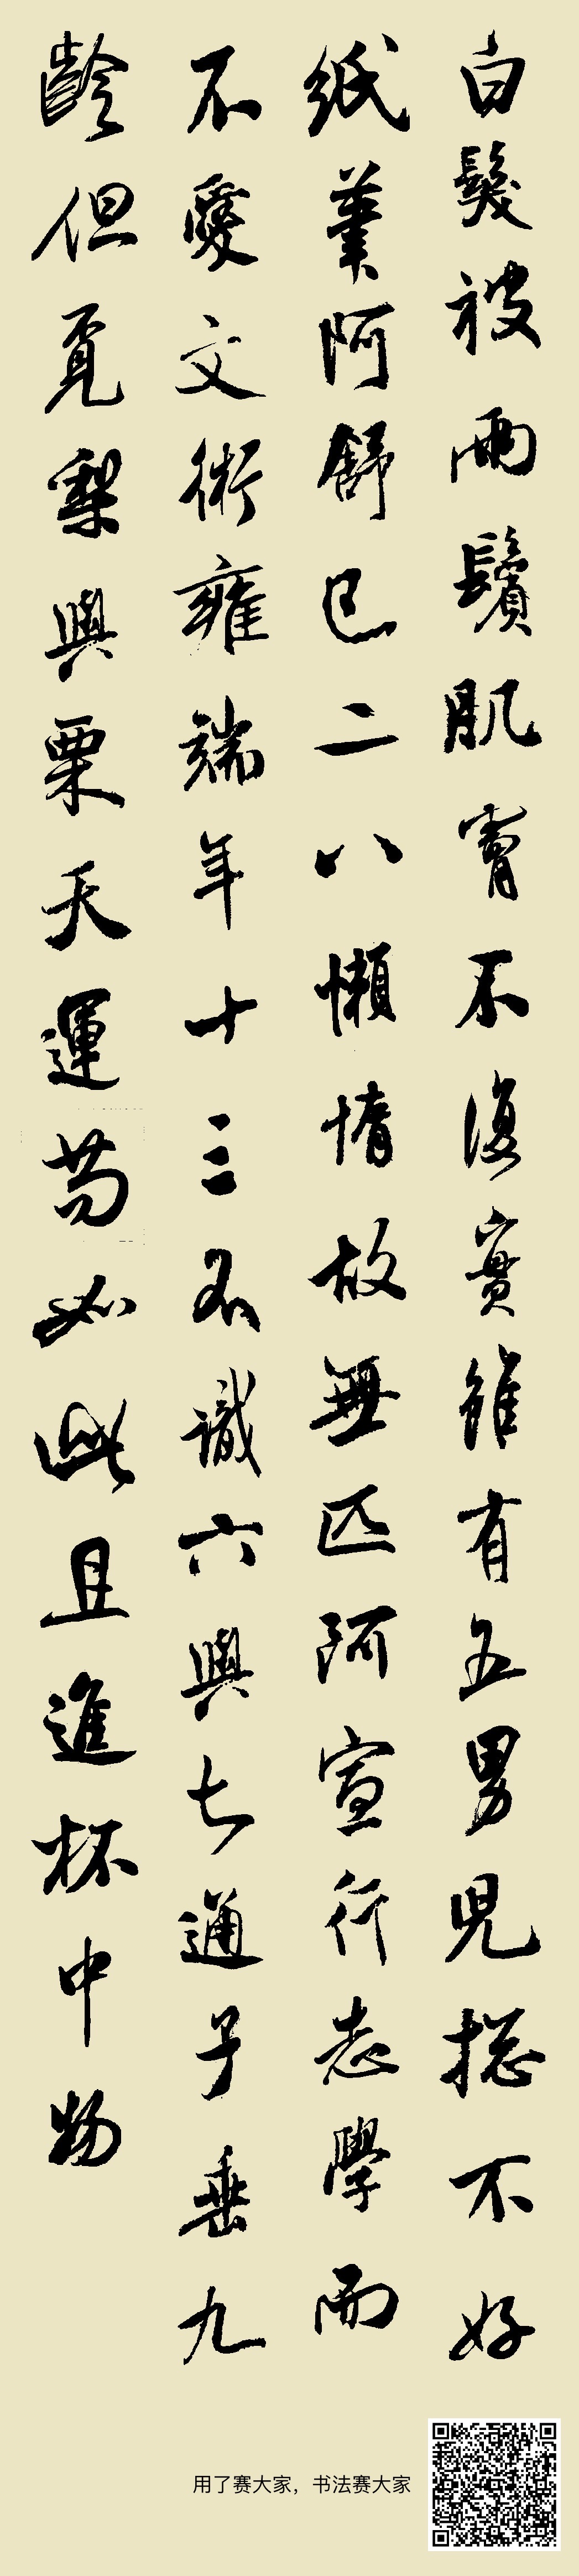 白髮被兩鬢肌膚不復實雖有五男兒揔不好
紙筆阿舒已二八懶惰故無匹阿宣行志學而
不愛文術雍端年十三不識六與七通子垂九
齡但覓梨與栗天運苟如此且進杯中物
用了赛大家，书法赛大家